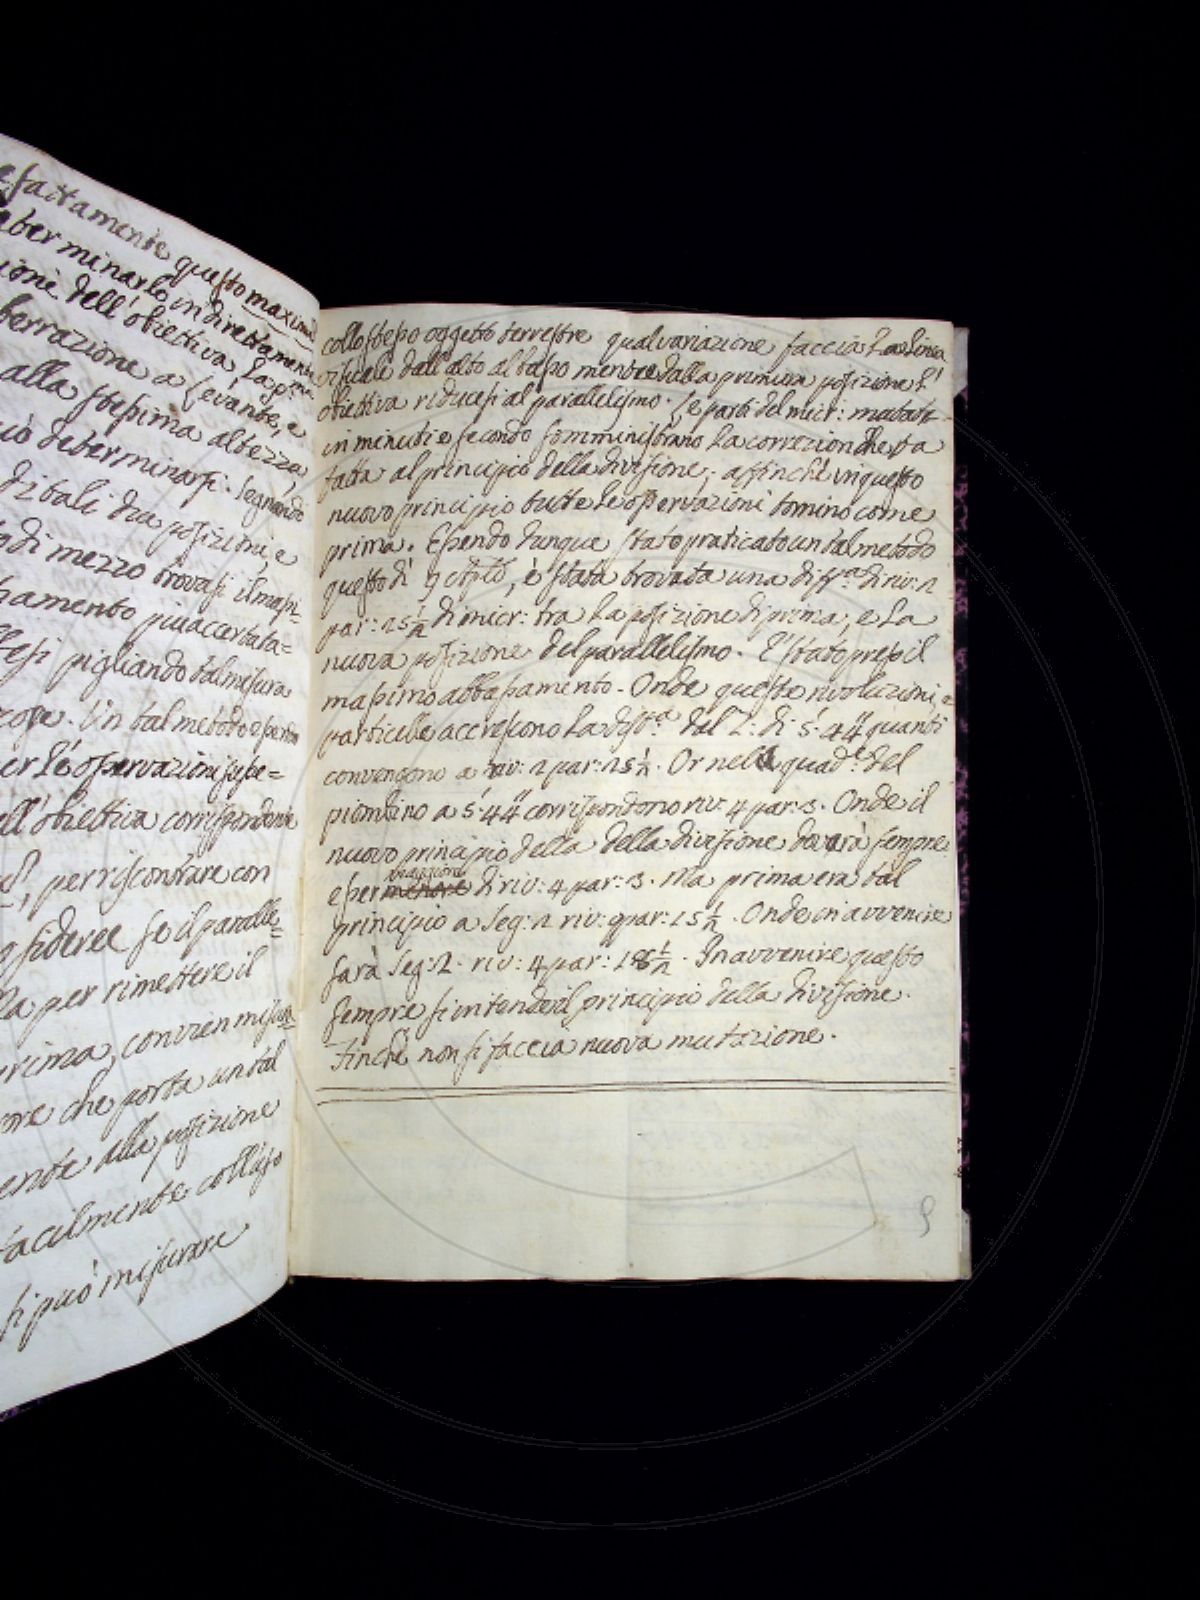 efattamente questo maxim
eterminarlo indirettamente
ione dell'obiettiva la p.ma
berrazione a Levante, e
alla stessima altezza,
ciò determinarsi. Segnando
di tali due posizioni, e
o di mezzo trovasi il mass=
samento piu accertata=
lesi pigliando tal misura
cope. Un tal metodo essendo
er l'osservazioni susse=
all'obiettiva corrispondente
per riscontrare con
sideree se il paralle=
Ma per rimettere il
prima, convien misu=
ore che porta un tal
ente alla posizione
facilmente coll'ajo
si può misurare
collo stesso oggetto terrestre qual variazione faccia La Linea
visuale dall'alto al basso mentre dalla primiera posizione L'
obiettiva riducesi al parallelismo. Le parti del micr: mutate
in minuti e secondo somministrano La correzion che sta
fatta al principio della divisione; affinchè in questo
nuovo principio tutte Le osservazioni tornino come
prima. Essendo dunque stato praticato un tal metodo
questo dì 9 è stata trovata una diff.a di riv: 2
par: 25 1/2 di micr: tra La posizione di prima, e La
nuova posizione del parallelismo. E' stato preso il
massimo abbassamento. Onde queste rivoluzioni, e
particelle accrescono La dist.a dal Z. di 5'. 44" quanti
convengono a riv: 2 par: 25 1/2. Or nel quad.e del
piombino a 5'. 44" corrispondono riv: 4 par: 3. Onde il
nuovo principio della della divisione dovrà sempre
maggiore
esser minore di riv: 4 par: 3. Ma prima era tal
principio a Seg: 2 riv: 9 par: 15 1/2. Onde in avvenire
sarà Seg: 2. riv: 4 par: 18 1/2. In avvenire questo
sempre si intende il principio della divisione.
Finchè non si faccia nuova mutazione.
9